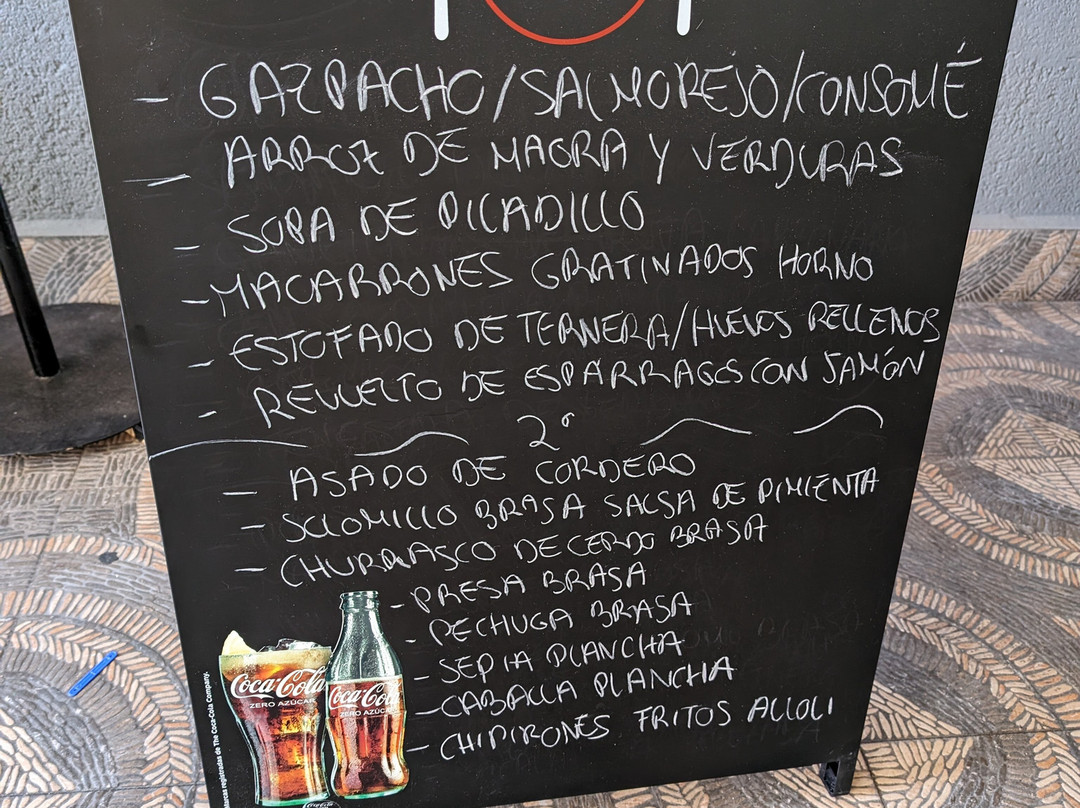 - GAZPACHO/SALMOREJO/CONSOMÉ
- ARROZ DE MAGRA Y VERDURAS
- SOPA DE PICADILLO
- MACARRONES GRATINADOS HORNO
- ESTOFADO DE TERNERA/HUEVOS RELLENOS
- REVUELTO DE ESPARRAGOS CON JAMÓN
2º
- ASADO DE CORDERO
- SOLOMILLO BRASA SALSA DE PIMIENTA
- CHURRASCO DE CERDO BRASA
- PRESA BRASA
- PECHUGA BRASA
- SEPIA PLANCHA
- CABALLA PLANCHA
- CHIPIRONES FRITOS ALLOLI
Coca-Cola
ZERO AZÚCAR
Coca-Cola
ZERO AZÚCAR
marcas registradas de The Coca-Cola Company.